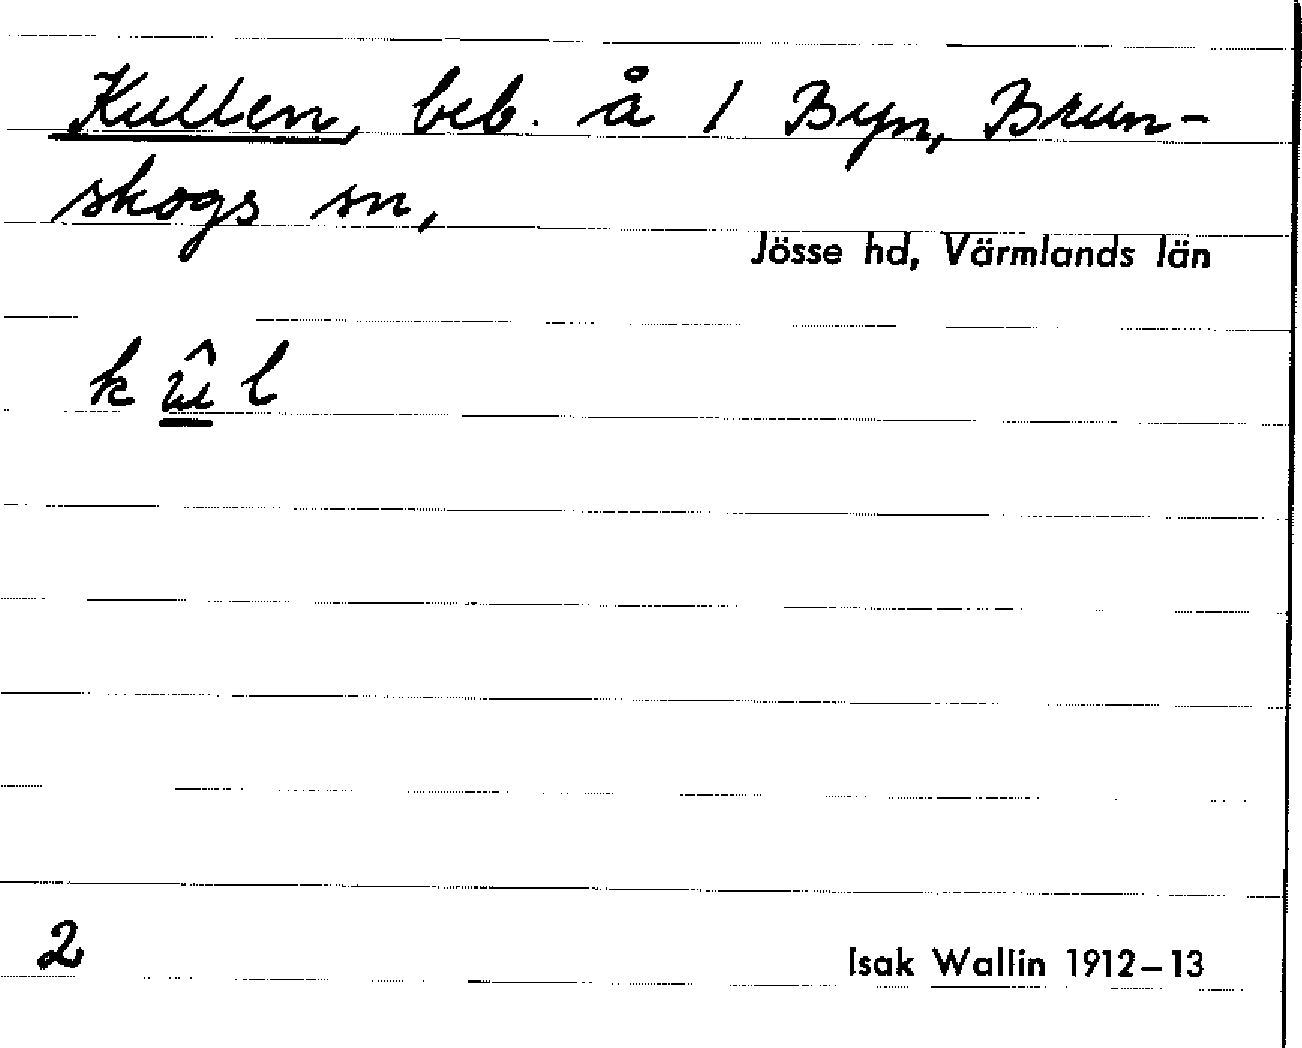 Kullen, beb. å 1 Byn, Brun-
skogs sn,
Jösse hd, Värmlands län
2
Isak Wallin 1912–13